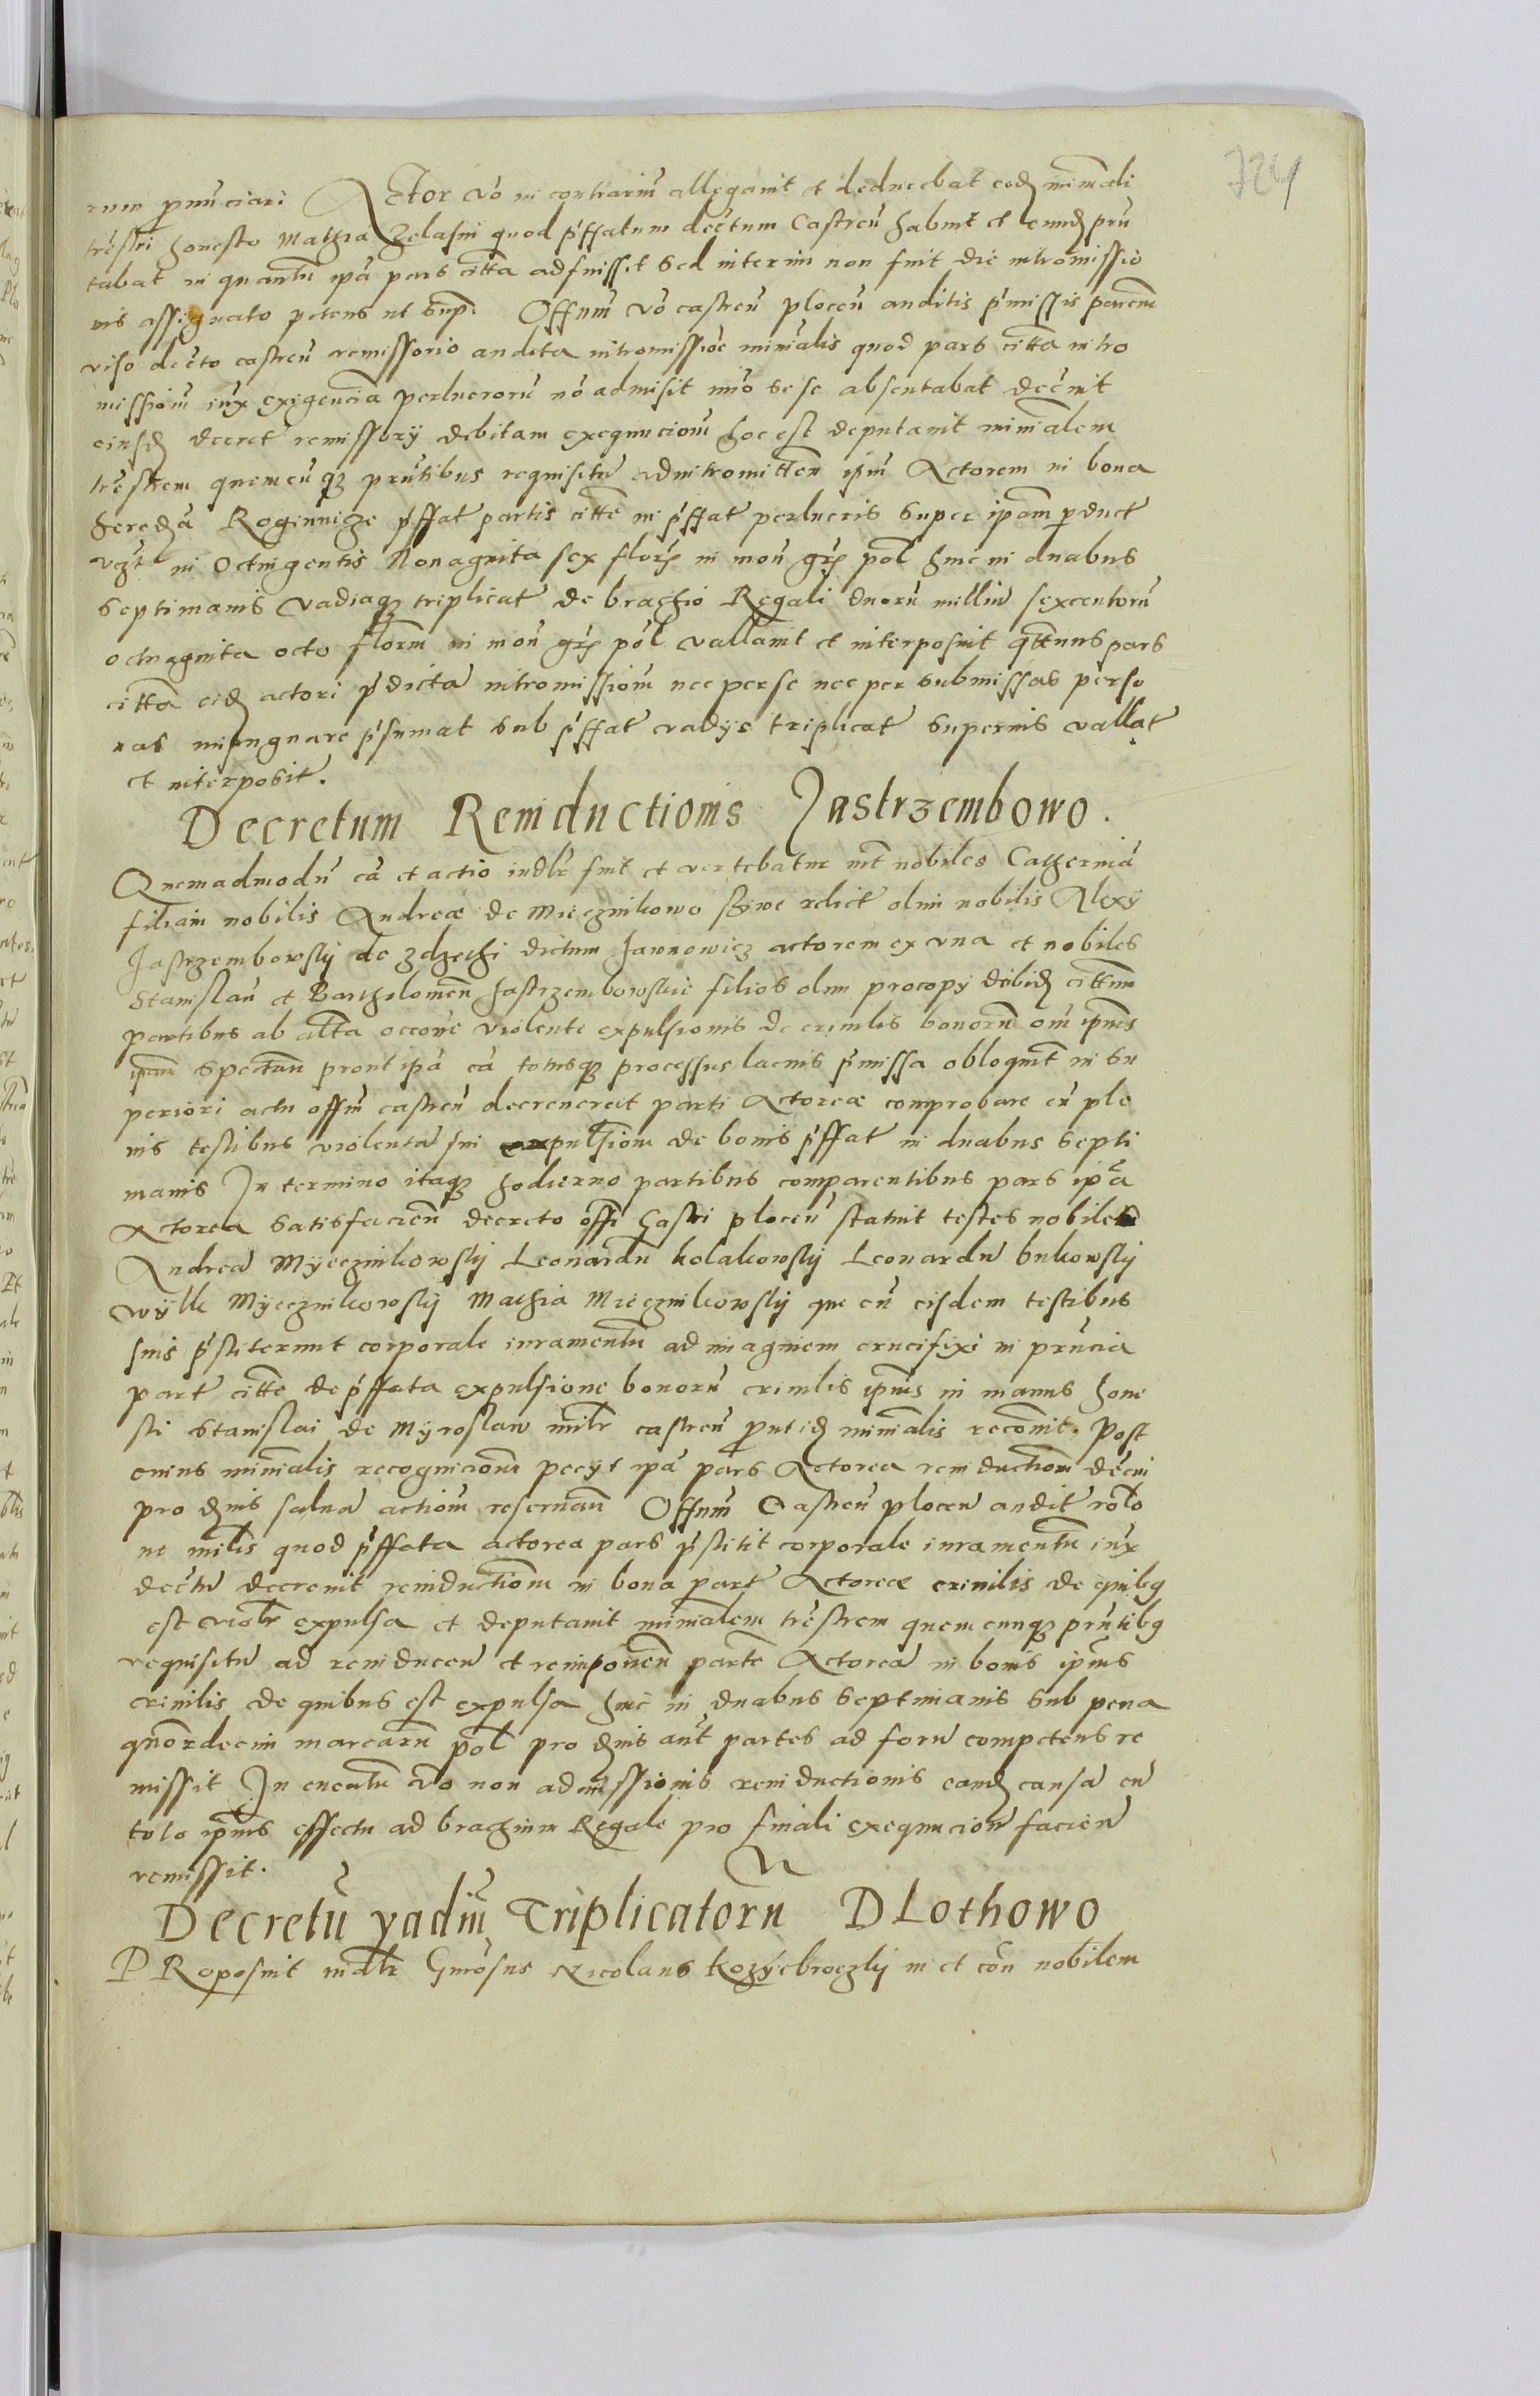 724
rum pronūciari Actor vō in contrariū allegavit et deducebat eodꝫ ministeriali
trēstri honesto Mathia Zelasni quod pˊffatum decrētum Castreñ habuit et eundꝫ prñ
tabat in quantū ipā pars cittā adfuissit sed interim non fuit die intromissio
nis assignato petens ut sup. Officium vō castreñ ploceñ auditis pˊmissis parcium
viso decrēto castreñ remissorio audita intromissiōe minrālis quod pars cittā intro
missionē iuxˉ exigenciā perlucrorū nō admisit imō se se absentabat decrēvit
eiusdꝫ decreti remissorij debitam exequucionē hoc est deputavit ministrālem
trēstrem quemcunqꝫ prñtibus requisitū ad intromitteñ ipm̄ Actorem in bona
heredꝫ Rogiennicze pˊffat partis cittē in pˊffat perlucris super ipam p duct
vzˉt in Octingentis Nonaginta sex florꝫ in moñ grꝫ pol hinc in duabus
septimanis vadiaqꝫ triplicat de brachio Regali duorū milliū sexcentorū
octuaginta octo florm̄ in moñ grꝫ pol vallavit et interposuit qttenus pars
cittā eidꝫ actori pˊdictā intromissionē nec per se nec per submissas perso
nas impugnare pˊsumat sub pˊffat vadijs triplicat superius vallat
et interposit.
Decretum Reinductionis Jastrzembowo.
Quemadmodū cā et actio iudlr̄ fuit et vertebatur int̄ nobiles Catherinā
filiam nobilis Andreæ de Mieczinkowo relict olim nobilis Alexij
Jastrzembowsky de zdzechi dictum Jawnowicz actorem ex una et nobiles
Stanislaū et Bartholomeū Jastrzembowskie filios olim procopij dēbidꝫ cittum
partibus ab altā occōne violente expulsionis de crinilis bonorū om ipius
ipam spectañ prout ipā cā totusqꝫ processus lacius pˊmissa obloquit in su
periori actu offm̄ castreñ decreverat parti Actoreæ comprobare cū ple
nis testibus violentā sui expulsionē de bonis pˊffat in duabus septi
manis In termino itaqꝫ hodierno partibus comparentibus pars ipā
Actorea satisfacieñ decreto offi Castri ploceñ statuit testes nobiles
Andreā Myeczinkowsky Leonardū kolakowsky Leonardū bukowsky
Myeczinkowsky Mathia Mieczinkowsky que cū eisdem testibus
suis pˊstiterunt corporale iuramentū ad imaginem crucifixi in prñcia
part cittē de pˊffata expulsione bonorū crinilis ipius in manus hone
sti Stanislai de Myroslaw mlr̄ castreñ prout idꝫ minrālis recōvit. Post
cuius minrālis recognicionē pecijt ipā pars Actorea reinductionē decrēni
pro dꝫnis salvā actionē reservañ Officium Castreñ ploceñ audit relō
ne mlis quod pˊffata actorea pars pˊstitit corporale iuramentū iuxˉ
decrētū decrevit reinductionē in bona part Actoreæ crinilis de quibꝯ
est violr̄ expulsa et deputavit minrālem trēstrem quemcunqꝫ prñtibꝯ
requisitū ad reinduceñ et reimponeñ partē Actoreā in bonis ipius
crinilis de quibus est expulsa hinc in duabus septimanis sub pena
quatordecim marcarū pol pro dꝫnis aūt partes ad forū competens re
missit In eventū vō non admissionis reinductionis eandꝫ causā cū
toto ipius effectu ad brachium Regale pro finali exequucionē facieñ
remissit.
Decretū vadiū Triplicatorū DLothowo
PRoposuit iudlr̄ Gn̄rosus Nicolaus kozyebroczky in et cōn nobilem